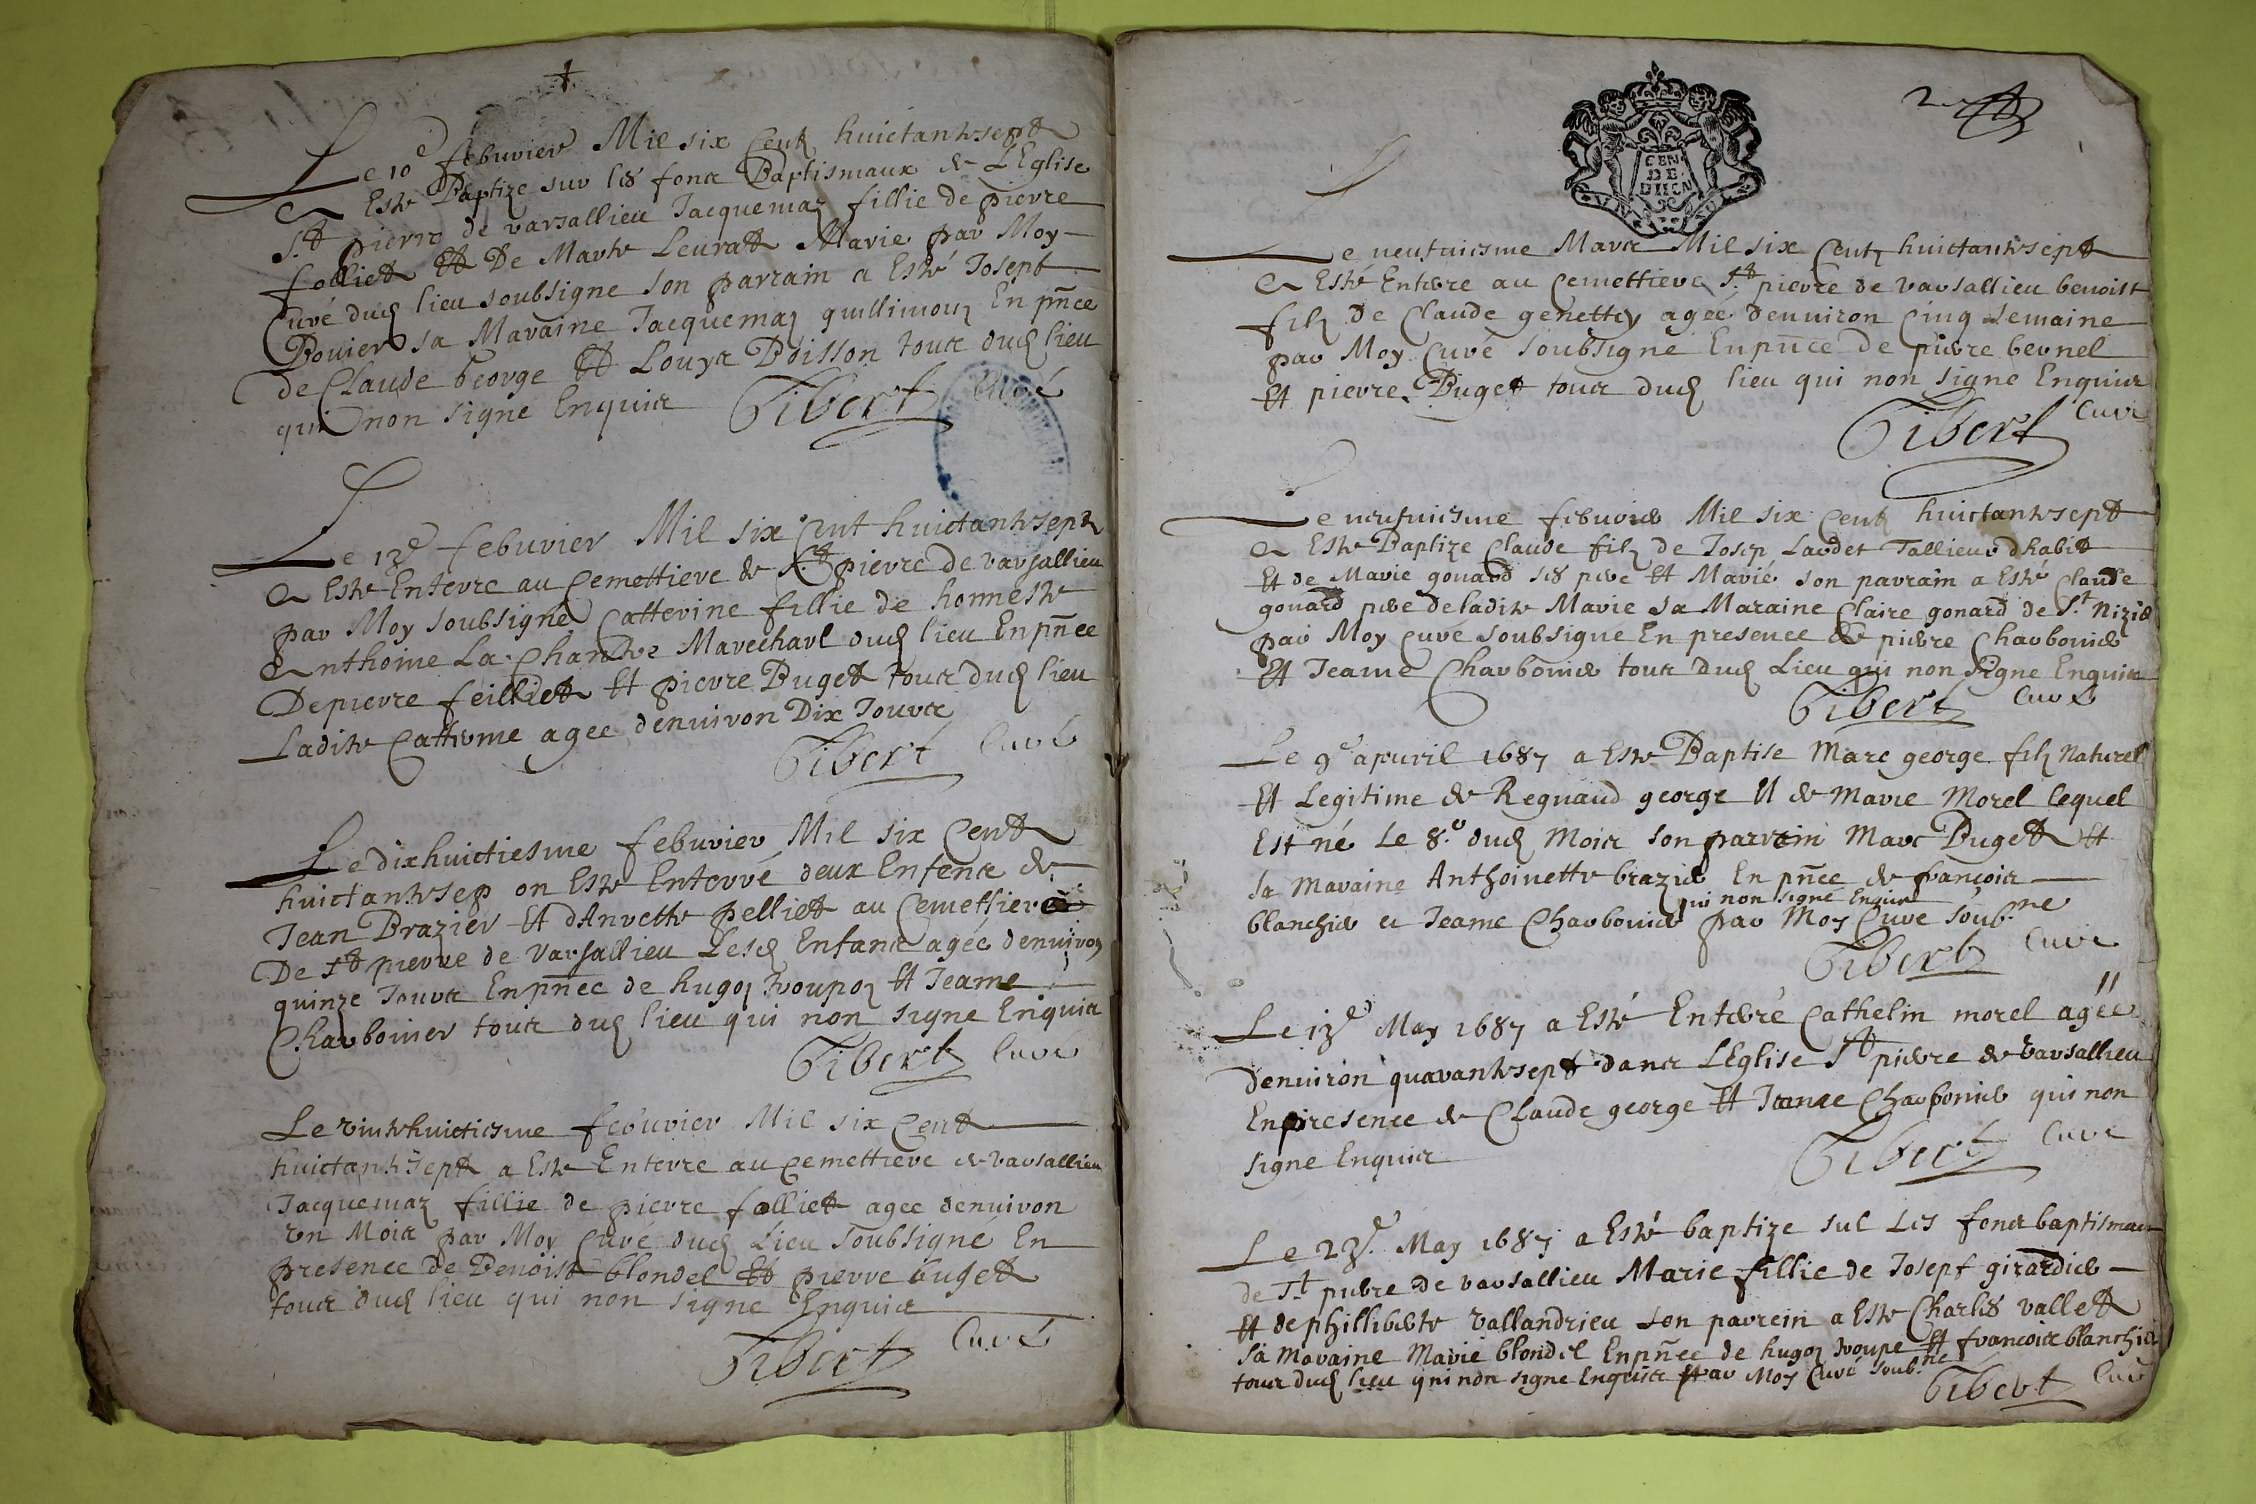 Le 10e febuvier Mil six Cent huictantesept
a Este Baptize sur les fons Baptismaux de LEglise
St pierre de varsallieu Jacquemaz fillie de pierre
folliet Et De Marte Leurat Marie par Moy
Curé dud lieu soubsigne son parrain a Esté Josept
Bovier sa Maraine Jacquemaz guillimouz En pñce
de Claude George Et Louys Boisson tous dud lieu
qui non signe Enquis Gibert Curé
Le 12e febuvier Mil six Cent huictantesept
a Este Enterre au Cemettiere de St pierre de varsallieu
par Moy soubsigne Catterine fillie de honneste
Anthoine La Chambre Marecharl dud lieu En pñce
De pierre feilliet Et pierre Buget tous dud lieu
Ladite Catterine agee denuiron Dix Jours
Gibert Curé
Le dixhuictiesme febuvier Mil six Cent
huictantesep on Este Enterré deux Enfens de
Jean Brazier Et dAnvette pelliet au Cemettiere
De St pierre de varsallieu Lesd Enfans agés denuiron
quinze Jours En pñce de hugoz troupoz Et Jeame
Charbonier tous dud lieu qui non signe Enquis
Gibert Cure
Le vintehuictiesme febuvier Mil six Cent
huictantesept a Este Enterre au Cemettiere de varsallieu
Jacquemaz fillie de pierre folliet agee denuiron
vn Mois par Moy Curé dud Lieu soubsigné En
presence de Benoist blondel Et pierre buget
tous dud lieu qui non signe Enquis
Gibert Curé
2
CEN
DE
DIJCN
Le neufuiesme Mars Mil six Cent huictantesept
a Esté Enterre au Cemettiere St pierre de varsallieu benoist
filz De Claude genettey agée denuiron Cinq semaine
par Moy Curé soubsigné En pñce de pierre bernel
Et pierre Buget tous dud lieu qui non signe Enquis
Gibert Cure
Le neufuiesme febuvier Mil six Cent huictantesept
a Este Baptize Claude filz de Josep Laudet Tallieur dhabit
Et de Marie gonard ses pere Et Marié son parrain a Esté Claude
gonard pere de ladite Marie sa Maraine Claire gonard de St Nizier
par Moy Curé soubsigne En presence de pierre Charbonier
Et Jeame Charbonier tous dud Lieu qui non signe Enquis
Gibert Curé
Le 9e apuril 1687 a Este Baptise Marc george filz Naturel
Et Legitime de Regnaud george Et de marie Morel lequel
Est né Le 8e dud Mois son parrein Marc Buget Et
sa maraine Anthoinette brazier En pñce de francois
qui non signé Enquis
blanchier et Jeame Charbonier par Moy Curé soubne
Gibert Cure
Le 12e May 1687 a Esté Enterré Cathelin morel agée
denuiron quarantesept dans LEglise St pierre de varsallieu
En presence de Claude george Et Jeame Charbonier qui non
signe Enquis Gibert Cure
Le 22e May 1687 a Esté baptize sul Les fons baptismaux
de St pierre de varsallieu Marie fillie de Josept girardier
Et de phillliberte vallandrieu son parrein a Este Charles vallet
sa maraine Marie blondel En pñce de hugoz troupe Et francois blanchier
tous dud lieu qui non signe Enquis par Moy Curé soubne
Gibert Curé